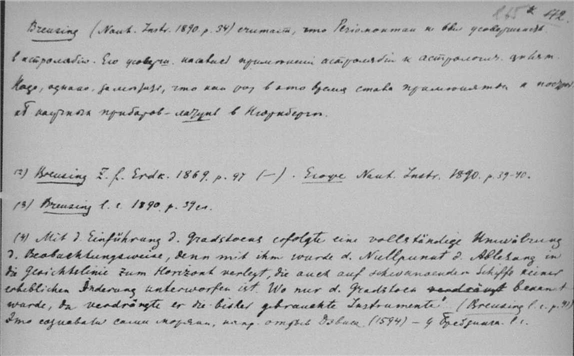 245* 172
Breusing (Naut. Instr. 1890. p. 34) считает, что Региомонтан и был усоверш.
астролябии. Его усоверш. касается применений астролябии к астрологич. целям.
Надо, однако, заметить, что как раз в это время стала применяться
научных приборов - латунь в Нюрнберге.
2) Breusing Z. f. Erdk. 1869. p. 97 (–). Его же Naut. Instr. 1890. p. 39-40.
(3) Breusing l. c. 1890. p. 37 сл.
(4) Mit d. Einführung d. Gradstocks erfolgte eine vollständige Umwälzung
d. Beobachtungsweise, denn mit ihm wurde d. Nullpunct d. Ablesung in
die Gesichtslinie zum Horizont verlegt, die auch auf schwankender Schiffe keiner
erheblichen Änderung unterworfen ist. Wo nur d. Gradstock bekannt
wurde, da verdrängte er die bisher gebrauchte Instrumente! (Breusing l. c. p. 41)
Это сознавали сами моряки, напр. Дэвис (1594) – у Брейзинга l. c.